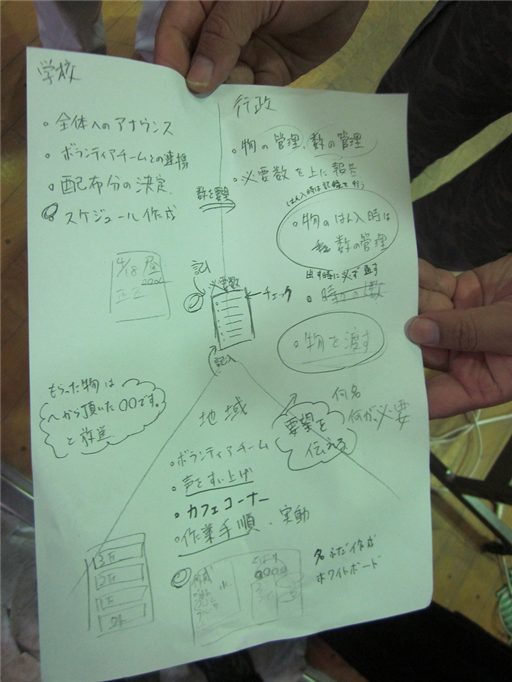 学校
・全体へのアナウンス
・ボランティアチームとの連携
・配布分の決定
スケジュール作成
行政
・物の管理、数の管理
・必要数を上に報告
・物のはん入時は
数の管理
・物を渡す
数を要望
4/18 昼
記
必要数
←チェック
記入
もらった物は
へから頂いた〇〇です。
と放送
地域
・ボランティアチーム
・声をすい上げ
・カフェコーナー
・作業手順、実動
要望を
伝える
何名
何が必要
名ふだ作成
ホワイトボード